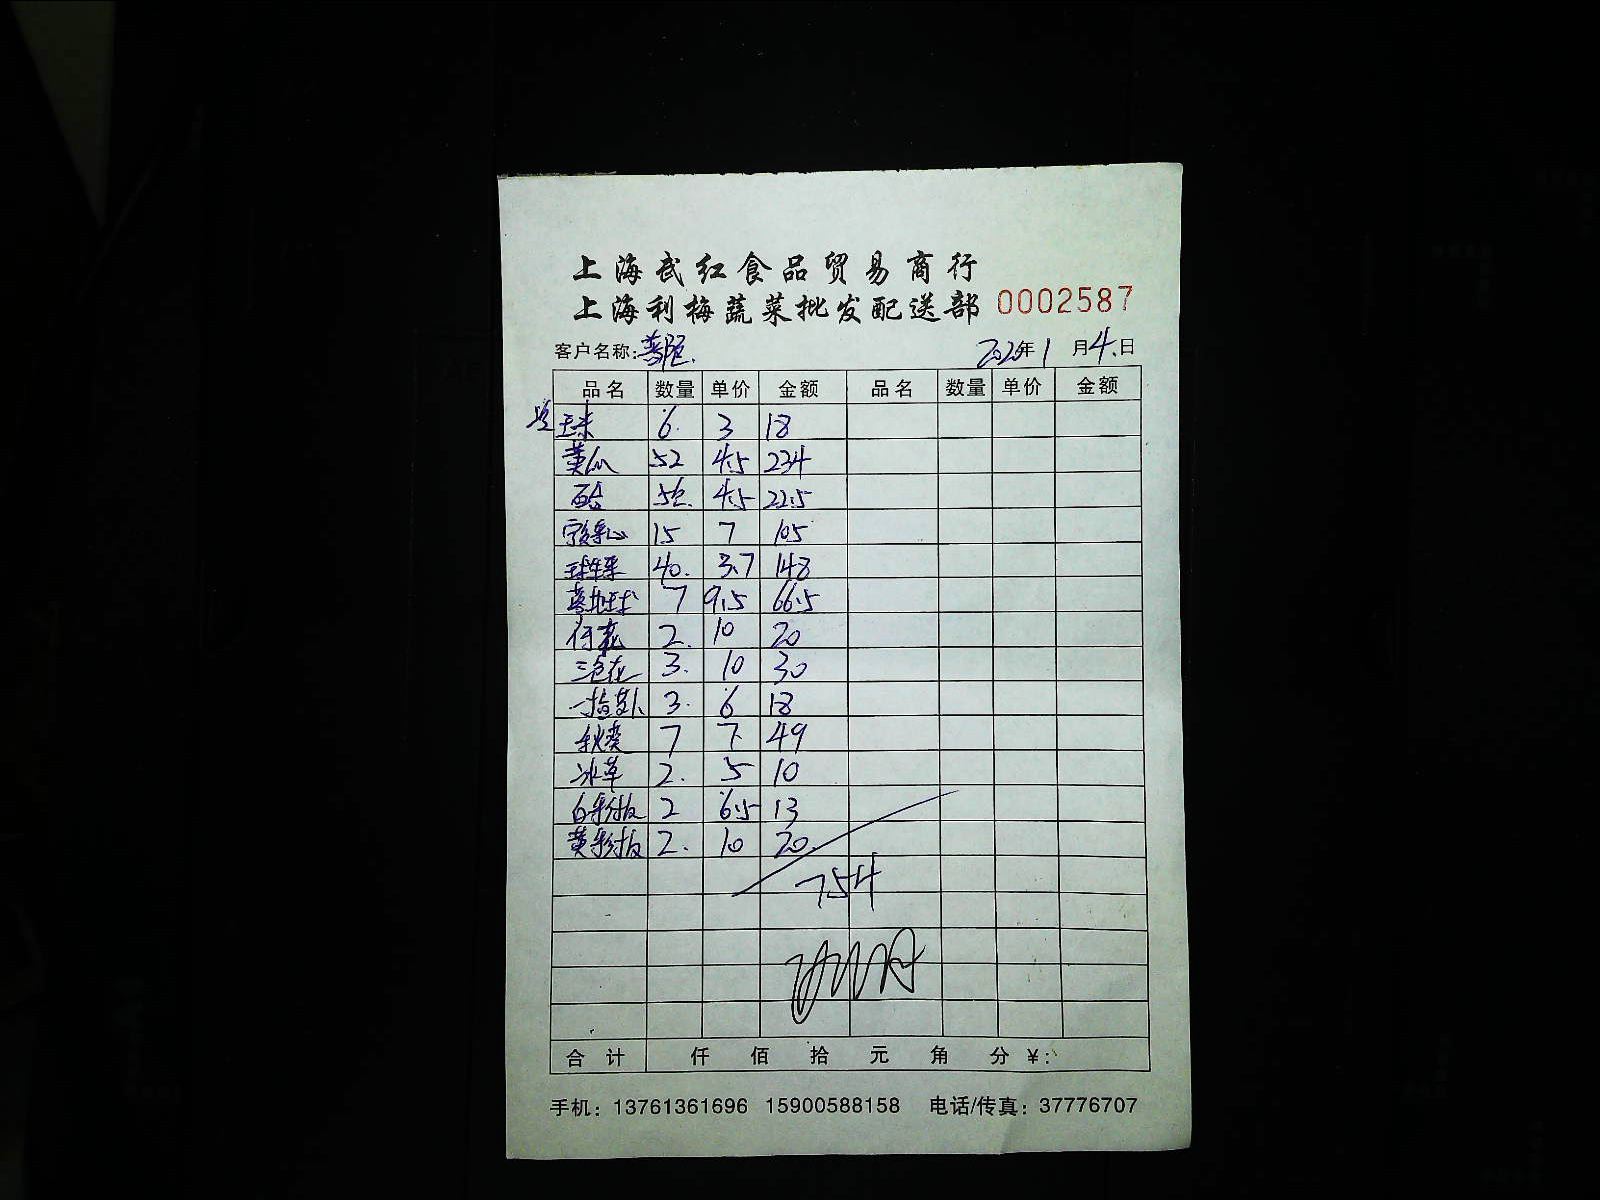 上海武红食品贸易商行
上海利梅蔬菜批发配送部 0002587
客户名称: 2020年1月4日
品名 数量 单价 金额 品名 数量 单价 金额
玉米 6 3 18
黄瓜 52 4.5 234
百合 5包 4.5 22.5
15 7 105
球生菜 40 3.7 148
7 9.5 66.5
荷花 2 10 20
三色花 3 10 30
3 6 18
秋葵 7 7 49
冰草 2 5 10
白 2 6.5 13
黄 2 10 20
754
合计 仟 佰 拾 元 角 分 ¥:
手机: 13761361696 15900588158 电话/传真: 37776707